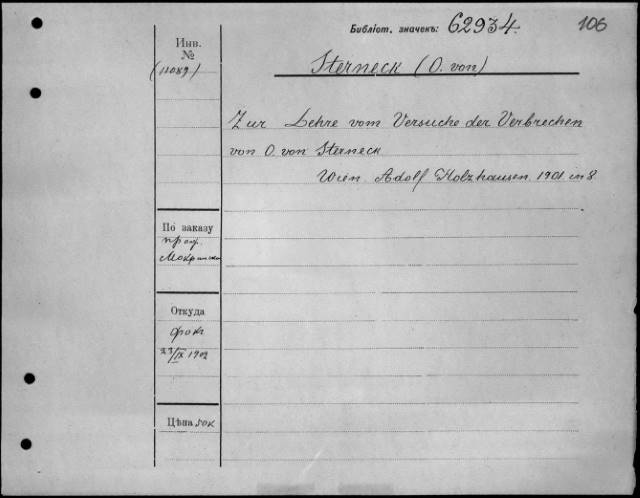 Библіот. значекъ: 62934. 106
Инв.
№
(11089)
Sterneck (O. von)
Zur Lehre vom Versuche der Verbrechen
von O. von Sterneck.
Wien. Adolf Holzhausen. 1901. in 8
По заказу
проф.
Откуда
фокъ
23/IX 1902
Цѣна 50к